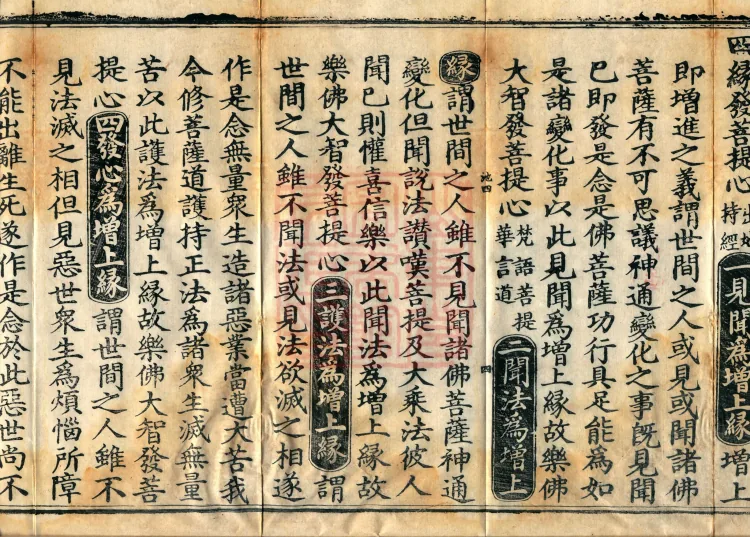 四緣發菩提心持經一見聞爲增上緣增上
即增進之義謂世間之人或見或聞諸佛
菩薩有不可思議神通變化之事旣見聞
已即發是念是佛菩薩功行具足能爲如
是諸變化事以此見聞爲增上緣故樂佛
大智發菩提心梵語菩提華言道二聞法爲增上
池四 四
緣謂世間之人雖不見聞諸佛菩薩神通
變化但聞說法讚嘆菩提及大乘法彼人
聞已則懽喜信樂以此聞法爲增上緣故
樂佛大智發菩提心三護法爲增上緣謂
世間之人雖不聞法或見法欲滅之相遂
作是念無量衆生造諸惡業當遭大苦我
今修菩薩道護持正法爲諸衆生滅無量
苦以此護法爲增上緣故樂佛大智發菩
提心四發心爲增上緣謂世間之人雖不
見法滅之相但見惡世衆生爲煩惱所障
不能出離生死遂作是念於此惡世尚不